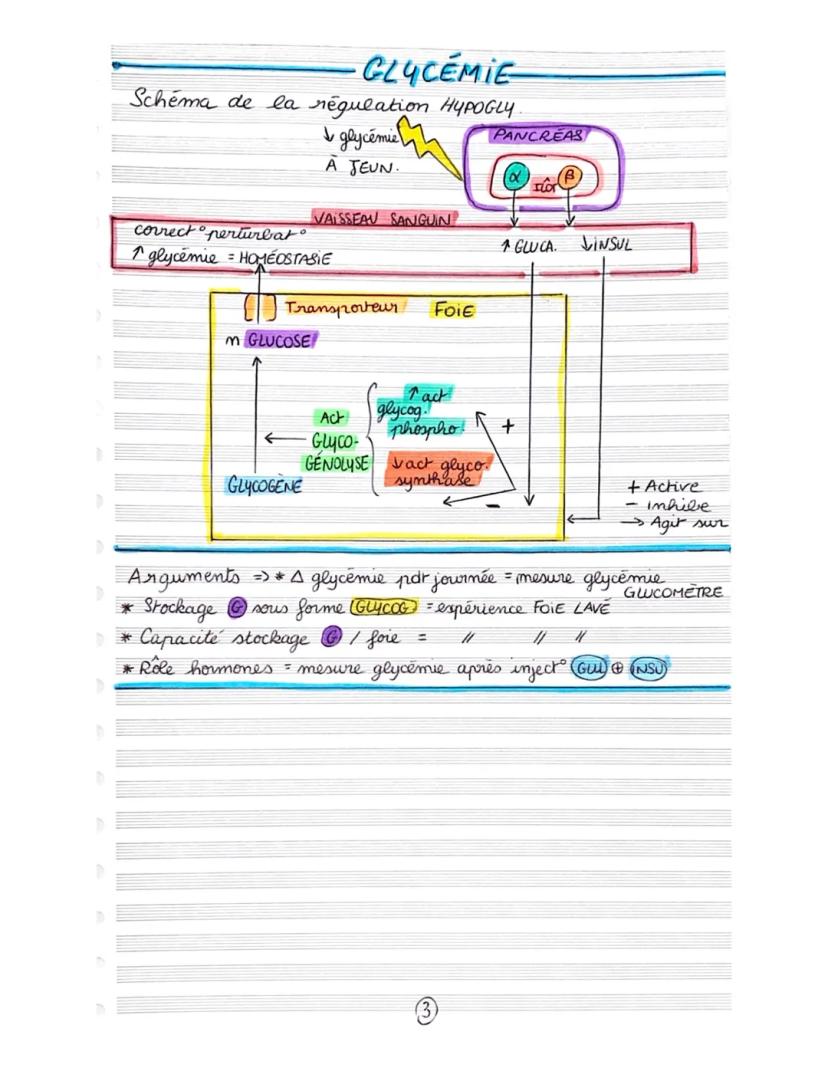 GLYCÉMIE
Schéma de la régulation HYPOGLY.
↓ glycémie
À JEUN.
PANCRÉAS
α Ilôt β
VAISSEAU SANGUIN
correct° perturbat°
↑ glycémie = HOMÉOSTASIE
↑ GLUCA. ↓ INSUL
Transporteur FOIE
m GLUCOSE
↑ act
glycog.
phospho.
+
Act
GLYCO-
GÉNOLYSE
↓ act glyco.
synthase
GLYCOGÈNE
-
+ Active
- inhibe
→ Agit sur
Arguments => * Δ glycémie pdt journée = mesure glycémie
GLUCOMÈTRE
* Stockage G sous forme GLYCOG = expérience FOIE LAVÉ
* Capacité stockage G / foie = // // //
* Rôle hormones = mesure glycémie après inject° GLU ⊕ INSU
3